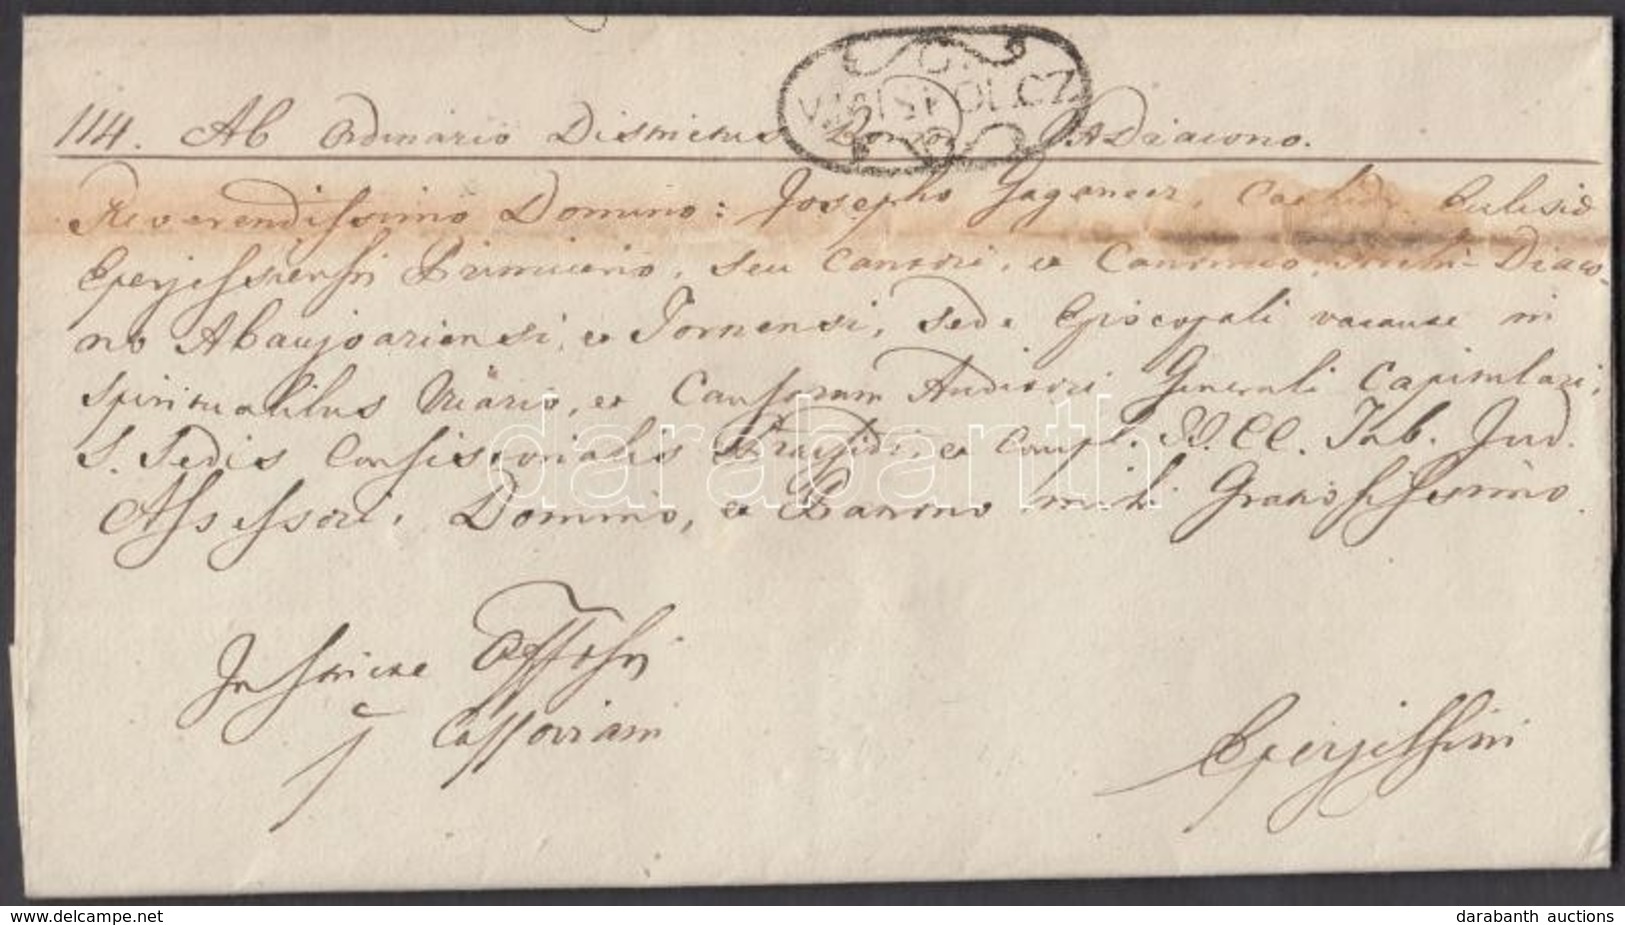 V. MISKOLCZ
114. Ab Ordinario Districtus ADiacono.
Reverendissimo Domino: Josepho Gaganecz, Cathdr. Eclesiæ
Eperjessiensri Primicerio, seu Cantori, et Canonico, Diaco-
no Abaujvariensi, et Tornensi, Sede Episcopali vacante in
spiritualibus Vicario, et Causarum Auditori Generali Capitulari,
S. Sedis Consistorialis Praesidi, et Compl. II. CC. Tab. Jud.
Assessori, Domino, et Patrono mihi Gratiosissimo.
Cassoviam
Eperjessini
darabanth
www.darabanth.com
darabanth auctions